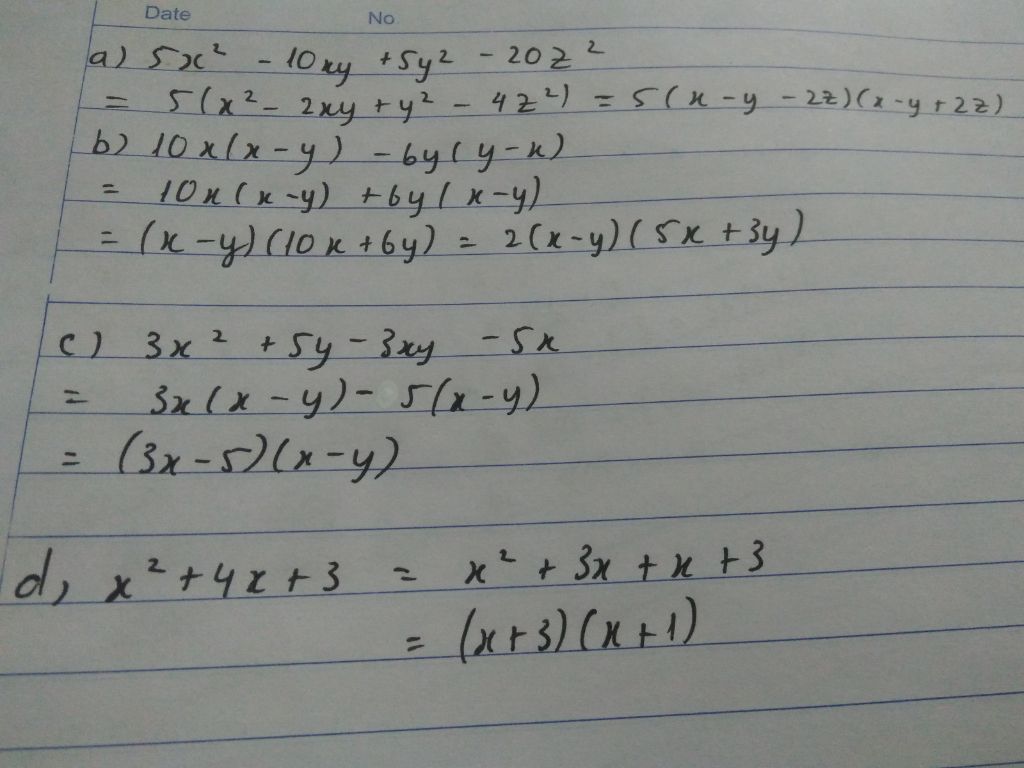 Date No
a) 5x² - 10xy + 5y² - 20z²
= 5(x² - 2xy + y² - 4z²) = 5(x - y - 2z)(x - y + 2z)
b) 10x(x - y) - 6y(y - x)
= 10x(x - y) + 6y(x - y)
= (x - y)(10x + 6y) = 2(x - y)(5x + 3y)
c) 3x² + 5y - 3xy - 5x
= 3x(x - y) - 5(x - y)
= (3x - 5)(x - y)
d, x² + 4x + 3 = x² + 3x + x + 3
= (x + 3)(x + 1)